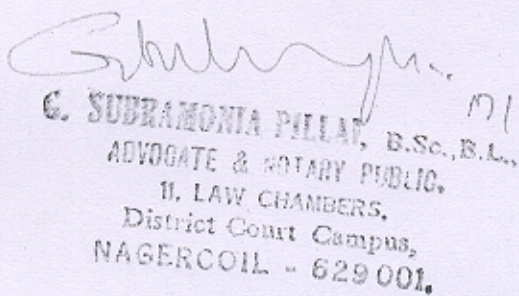 G. SUBRAMONIA PILLAI, B.Sc.,B.L.,
ADVOCATE & NOTARY PUBLIC.
11. LAW CHAMBERS,
District Court Campus,
NAGERCOIL - 629 001.